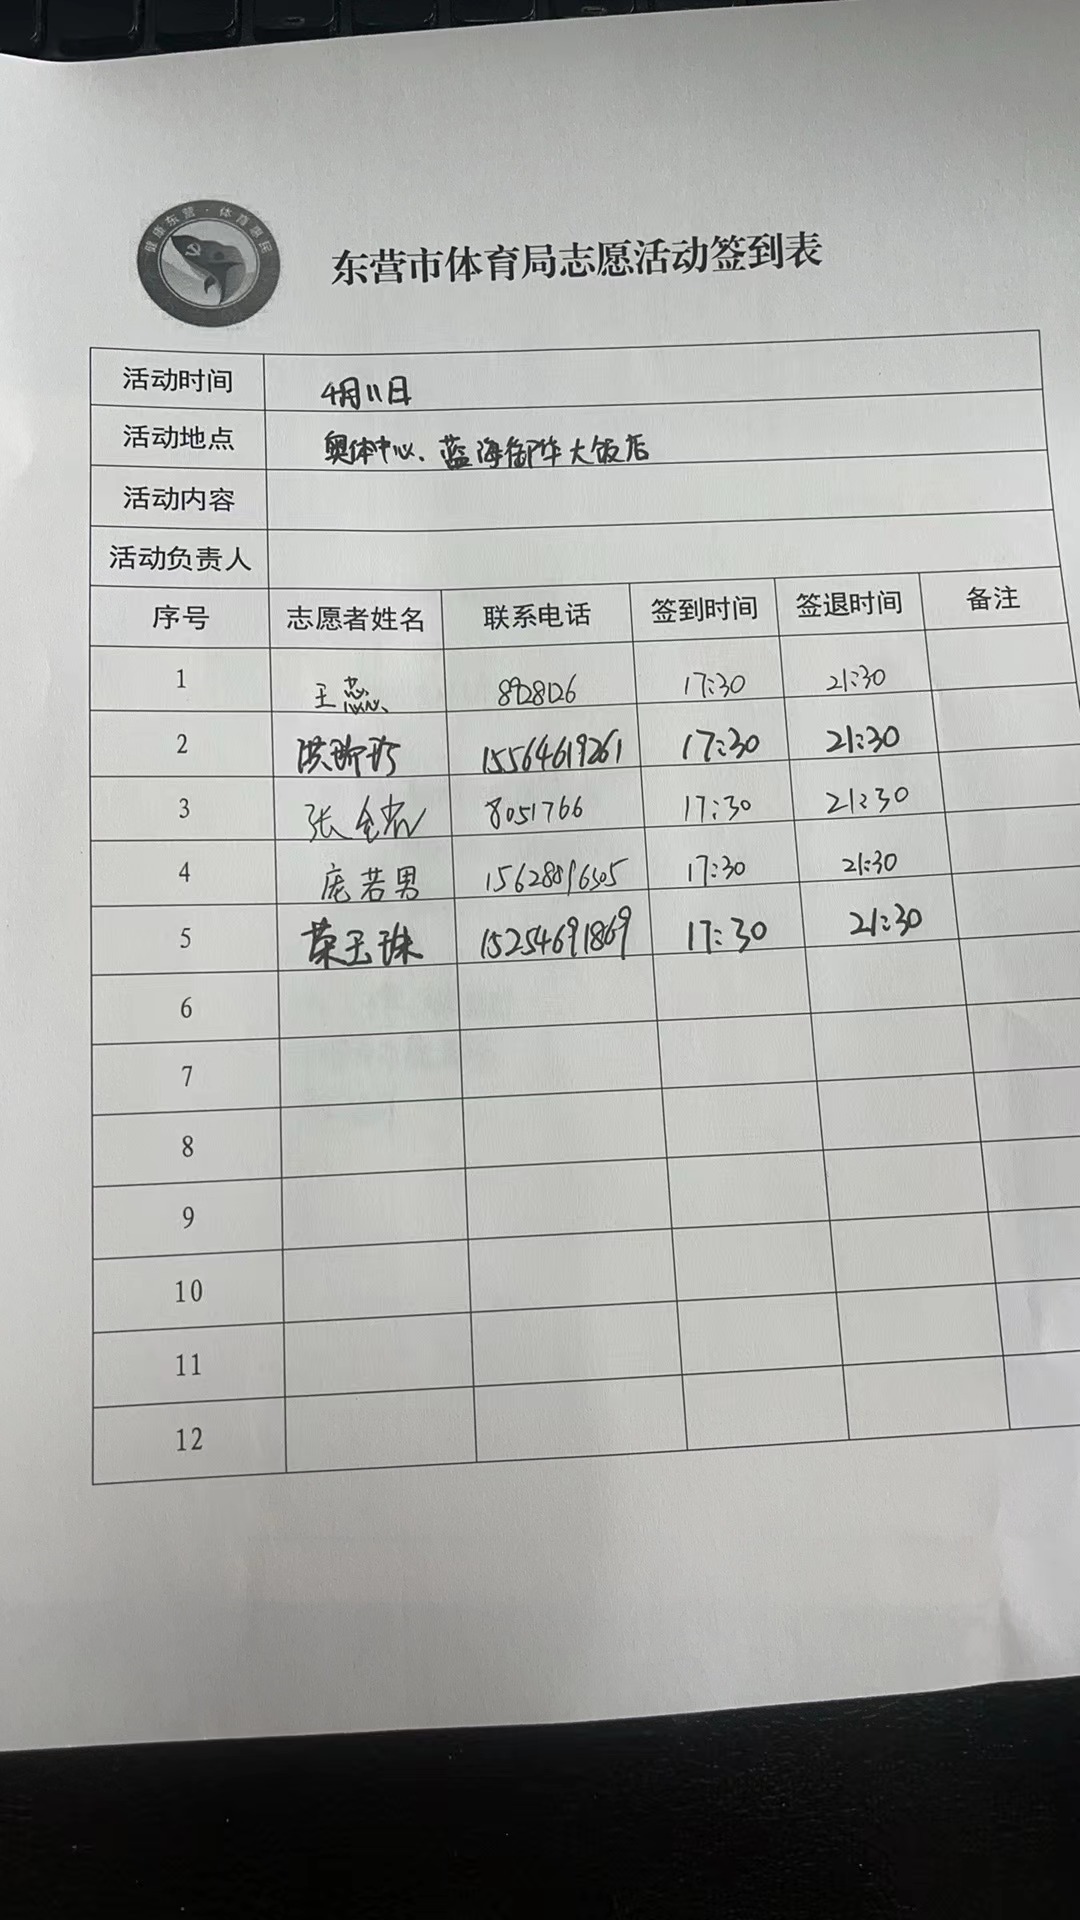 健康东营·体育惠民
东营市体育局志愿活动签到表
活动时间 4月11日
活动地点 奥体中心、蓝海御华大饭店
活动内容
活动负责人
序号 志愿者姓名 联系电话 签到时间 签退时间 备注
1 王蕊 8928126 17:30 21:30
2 15564619261 17:30 21:30
3 张 8051766 17:30 21:30
4 庞若男 17:30 21:30
5 荣玉珠 15254691869 17:30 21:30
6
7
8
9
10
11
12